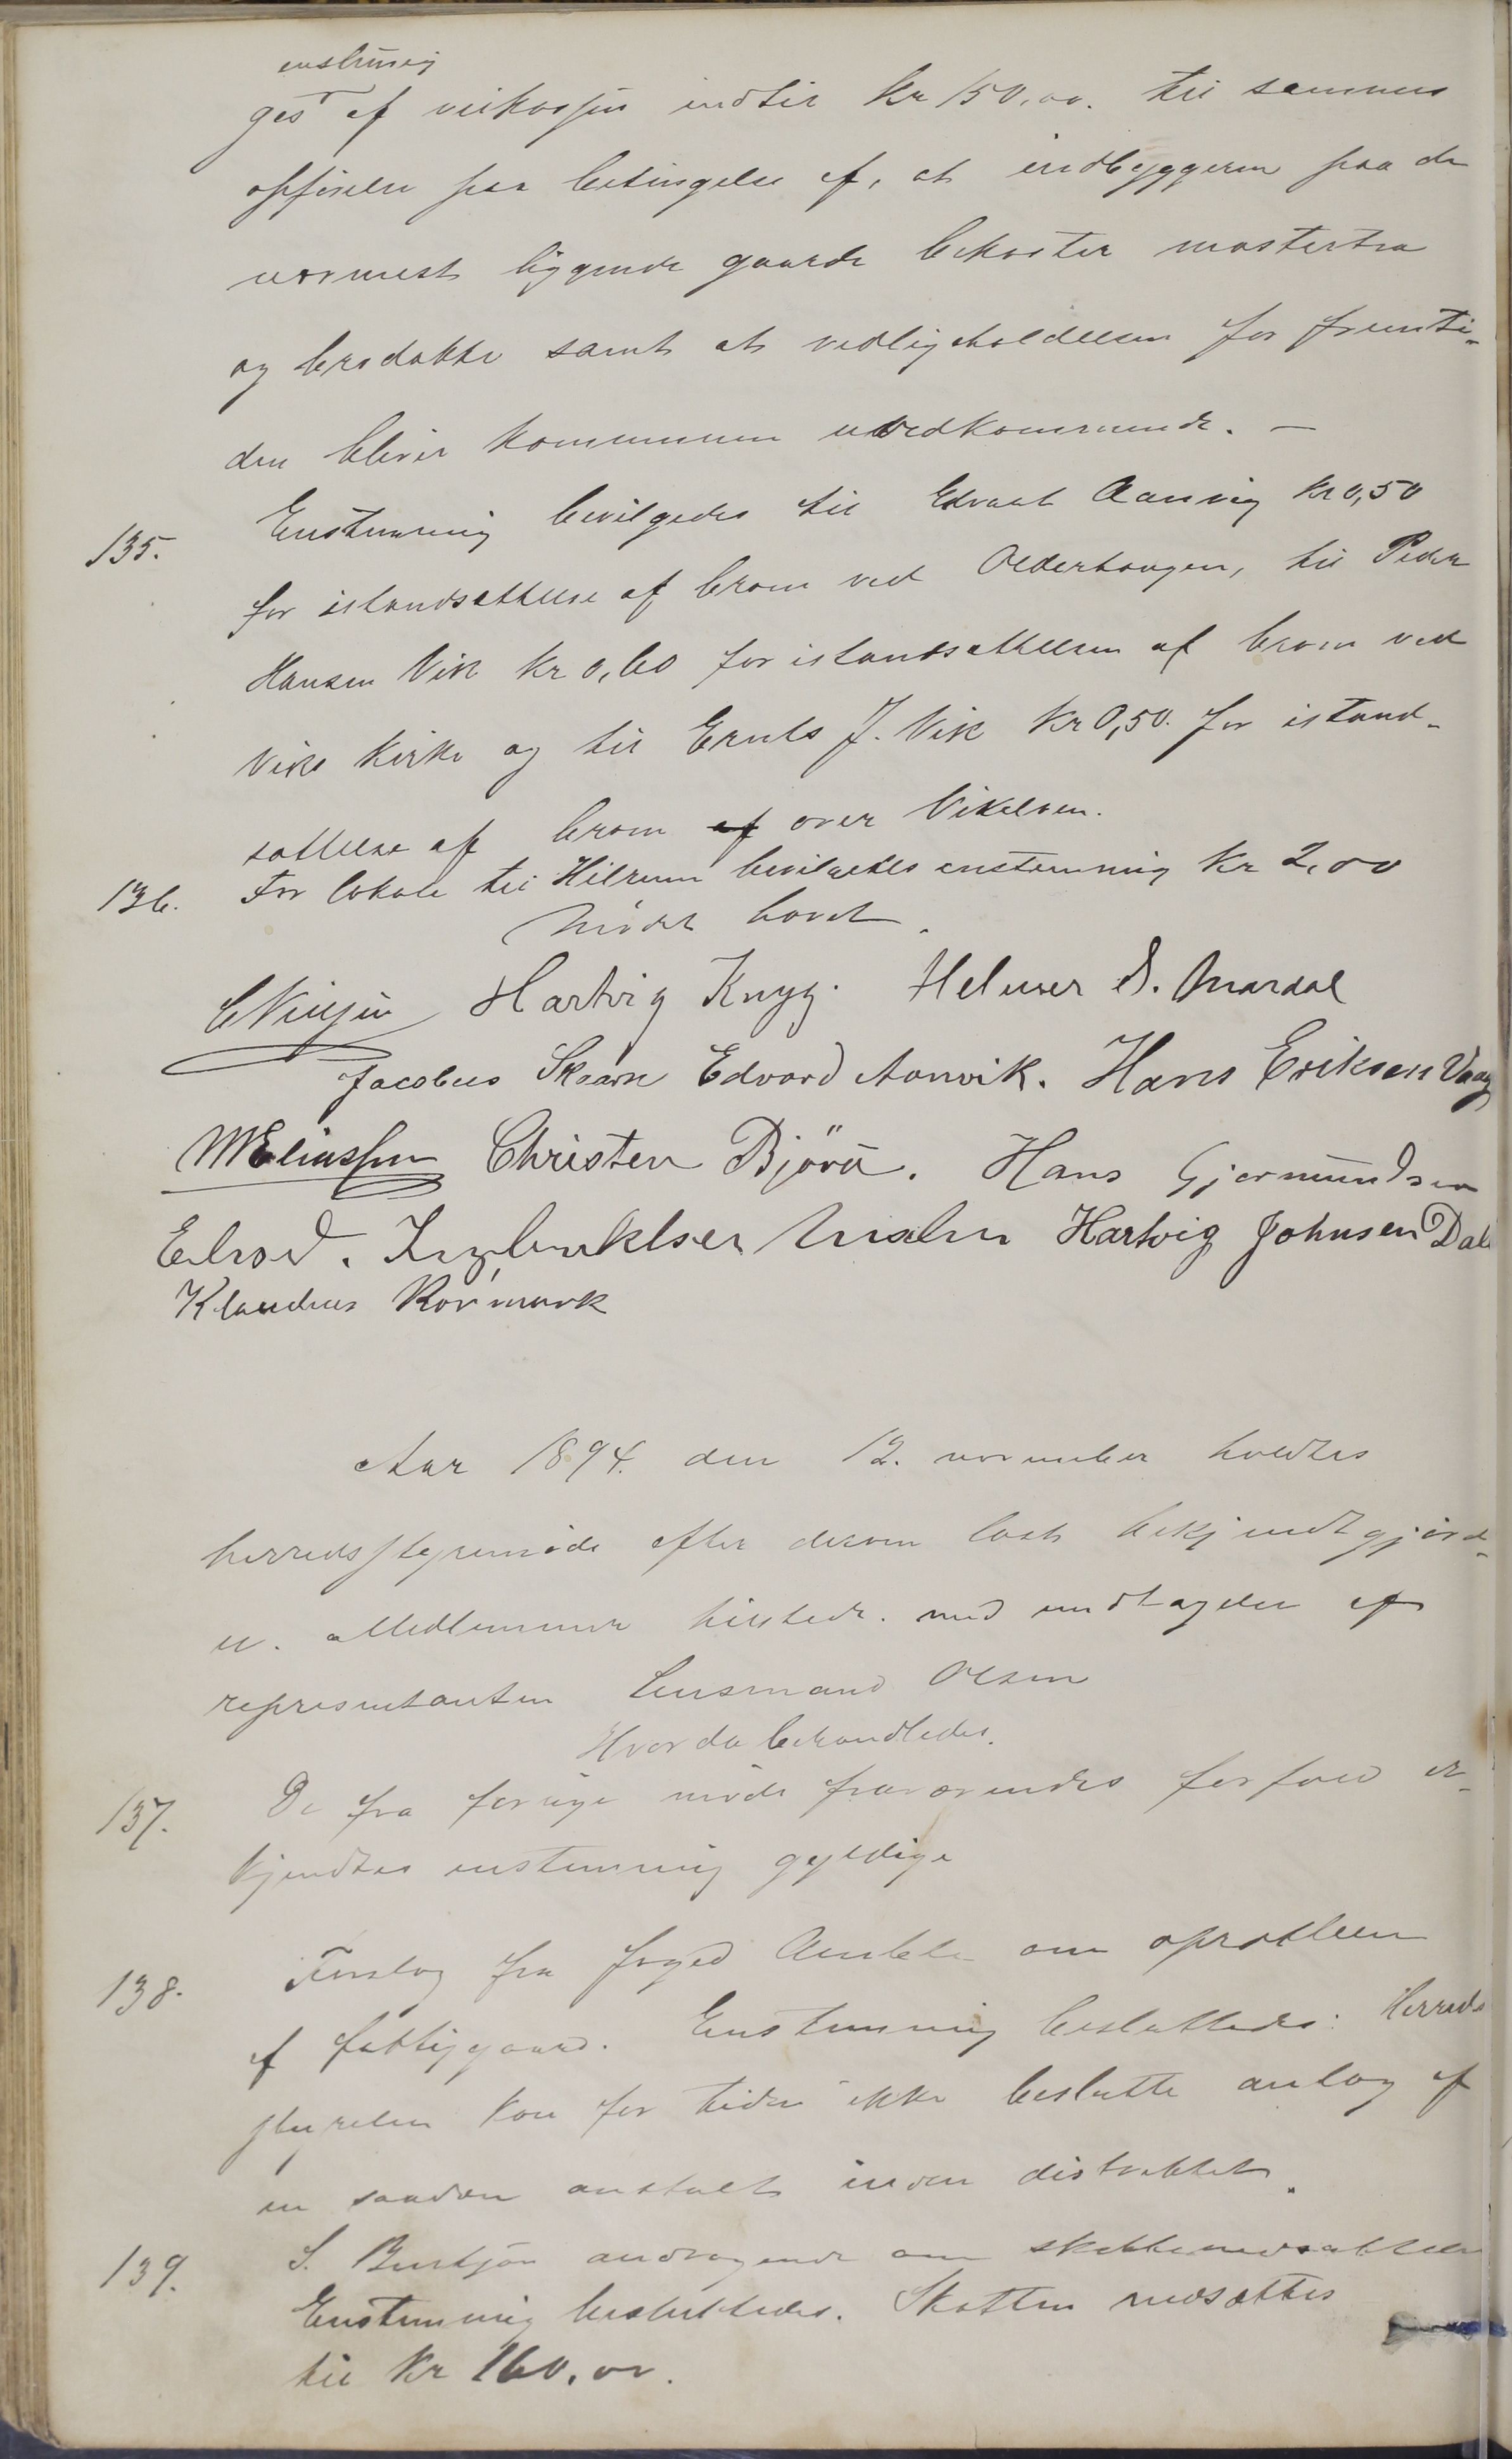 enstemmig
ges af veikassen indtil Kr 150,00. til sammes
opførelse paa betingelse af, at indbyggerne paa de
nærmest liggende gaarde bekoster
og brodække samt at vedligeholdelsen for fremti-
den bliver kommunen uvedkommende. —
135. Enstemmig bevilgedes til Edvart Aanvig Kr 0,50
for istandsættelse af broen ved Olderhaugen, til Peder
Hansen Vik Kr 0,60 for istandsættelsen af broen ved
Viks kirke og til Ernts J. Vik Kr 0,50. for istand-
sættelse af broen af over Vikelven.
136. For lokale til Hilrum bevilgedes enstemmig Kr 2,00
Mødet hævet.
Hartvig Knyg. Helmer S. Mardal
Jacobus Skaarn Edvard Aanvik. Hans Eriksen Vaag
M Eliassen Christen Björü. Hans Gjermundsen
Hartvig Johnsen Dal
Klaudius Rörmark
Aar 1894. den 12. november holdtes
herredsstyremøde efter derom løst bekjendtgjørel-
se. Medlemmer tilstede. med undtagelse af
repræsentanten Lensmand Olsen
Hvor da behandledes.
137. De fra forrige møde fraværendes forfald er-
kjendtes enstemmig gyldige
138. Forslag fra foged om oprettelsen
af fattiggaard. Enstemmig besluttedes: Herreds
styrelsen kan for tiden ikke beslutte anlæg af
en saadan anstalt inden distriktet.
139. S. andragende om skattenedsættelse
Enstemmig besluttedes. Skatten nedsættes
til Kr 160,00.